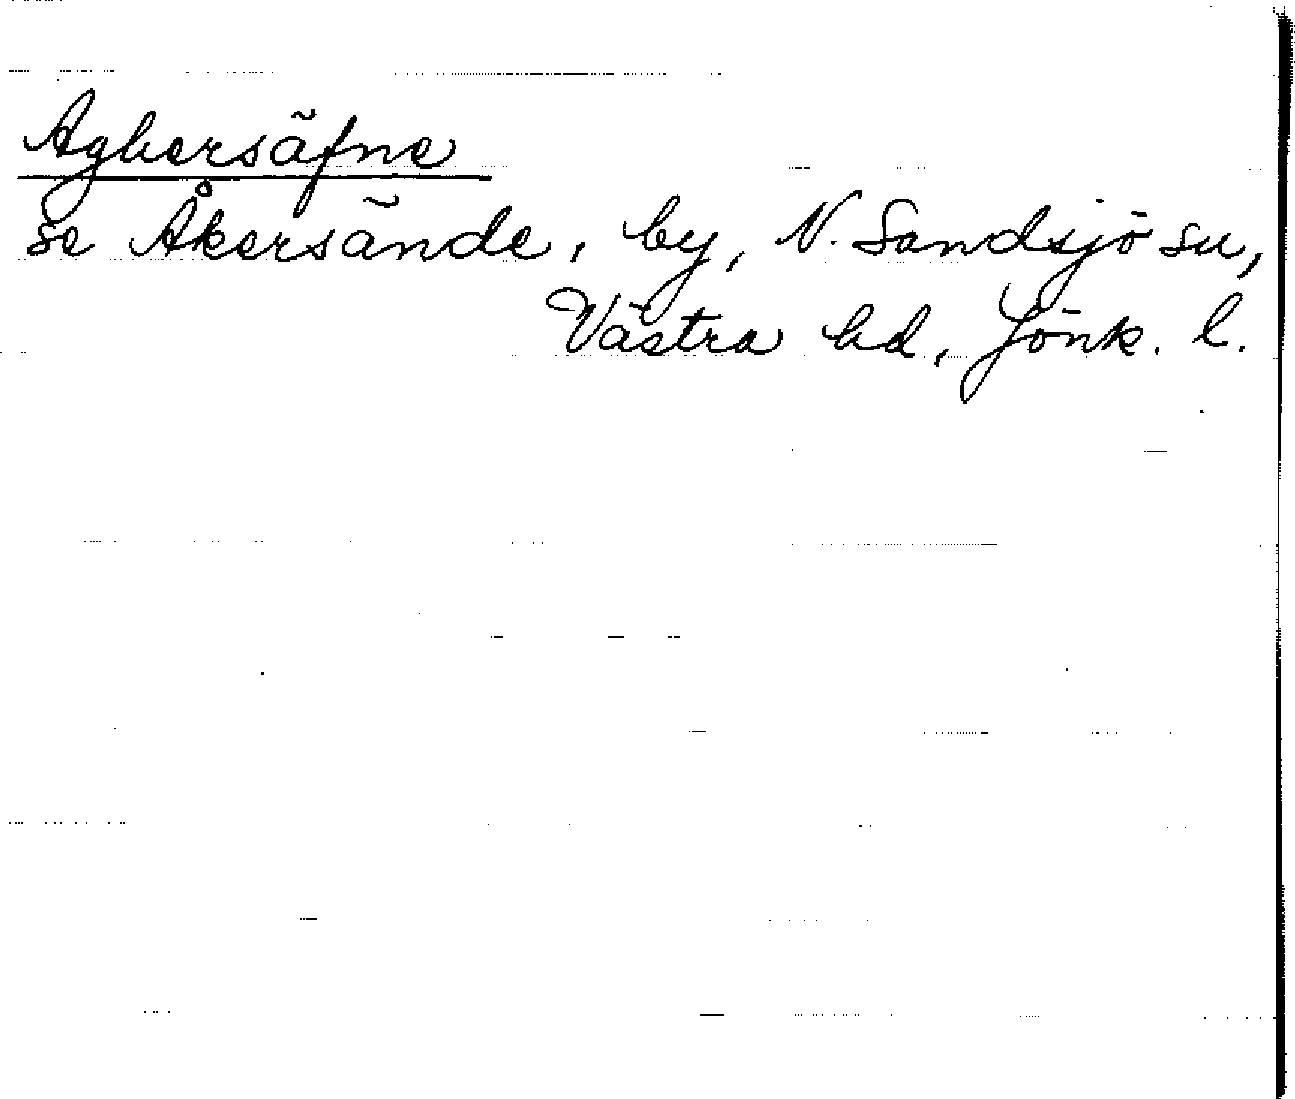 Aghersäfne
se Åkersände, by, N. Sandsjö sn,
Västra hd, Jönk. l.